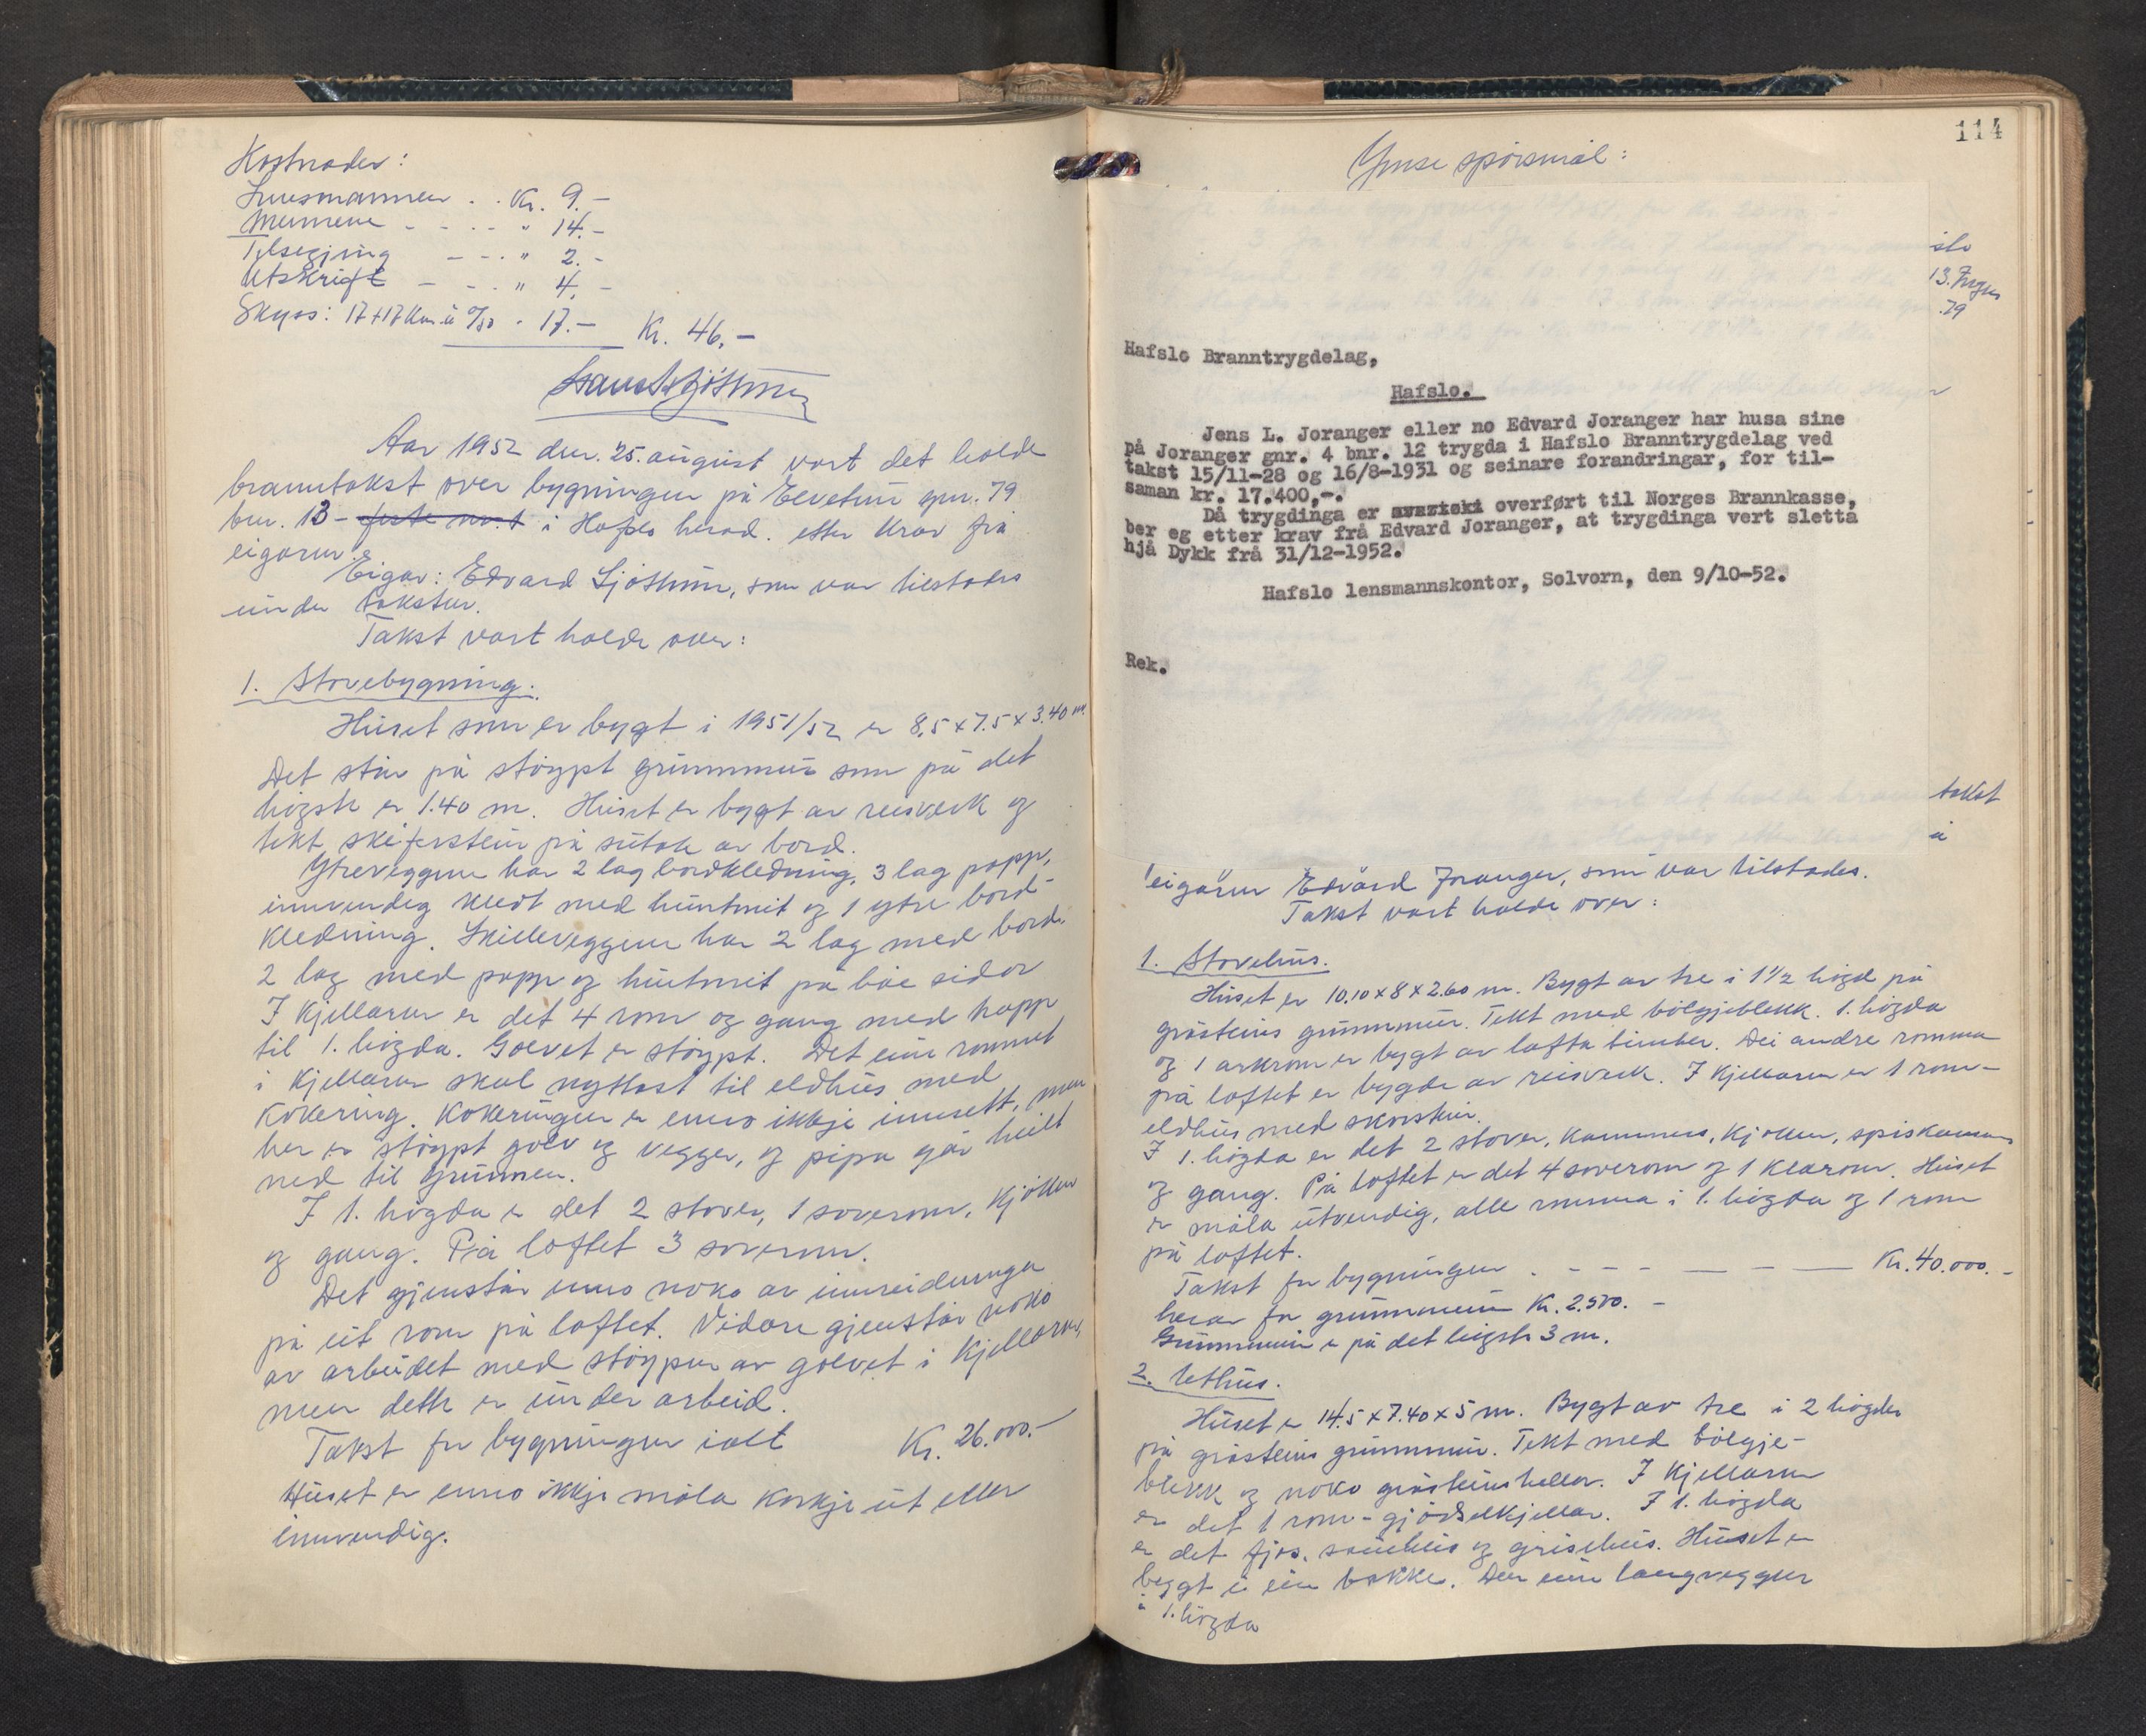 Kostnader:
Lensmannen . . Kr. 9.-
Mennene - - - - " 14.-
Tilsegjing - - - " 2.-
Utskrift - - - " 4.-
Skyss: 17+17 Km. à 0/50 - 17.- Kr. 46.-
Aar 1952 den. 25. august vart det halde
branntakst over bygningen på Elvetun gnr. 79
bnr. 13 - feste nr. 1 i Hafslo herad. etter krav frå
eigaren.
Eigar: Edvard Sjøthun, som var tilstades
under taksten.
Takst vart halde over:
1. Stovebygning:
Huset som er bygt i 1951/52 er 8,5 x 7.5 x 3.40 m.
Det står på støypt grunnmur som på det
høgste er 1.40 m. Huset er bygt av reisverk og
tekt skiferstein på sutak av bord.
Ytreveggene har 2 lag bordkledning, 3 lag papp,
innvendig kledt med huntonit og 1 ytre bord-
kledning. Skilleveggene har 2 lag med bord.
2 lag med papp og huntonit på båe sider
I kjellaren er det 4 rom og gang med trapp
til 1. høgda. Golvet er støypt. Det eine rommet
i kjellaren skal nyttast til eldhus med
kokering. Kokeringen er enno ikkje innsett, men
her er støypt golv og vegger, og pipa går heilt
ned til grunnen.
I 1. høgda er det 2 stover, 1 soverom, kjøken
og gang. På loftet 3 soverom.
Det gjenstår enno noko av innreidninga
på eit rom på loftet. Vidare gjenstår noko
av arbeidet med støypen av golvet i kjellaren,
men dette er under arbeid.
Takst for bygningen ialt Kr. 26.000.-
Huset er enno ikkje måla korkje ut eller
innvendig.
114
Ymse spørsmål:
slo
13. Juger
79
Hafslo Branntrygdelag,
Hafslo.
Jens L. Joranger eller no Edvard Joranger har husa sine
på Joranger gnr. 4 bnr. 12 trygda i Hafslo Branntrygdelag ved
takst 15/11-28 og 16/8-1931 og seinare forandringar, for til-
saman kr. 17.400,-.
Då trygdinga er overført til Norges Brannkasse,
ber eg etter krav frå Edvard Joranger, at trygdinga vert sletta
hjå Dykk frå 31/12-1952.
Hafslo lensmannskontor, Solvorn, den 9/10-52.
Rek.
takst
å
eigaren Edvard Joranger, som var tilstades.
Takst vart halde over:
1. Stovehus.
Huset er 10.10 x 8 x 2.60 m. Bygt av tre i 1 1/2 høgd på
gråsteins grunnmur. Tekt med bølgjeblekk. 1. høgda
og 1 arkrom er bygt av lafta timber. Dei andre romma
på loftet er bygde av reisverk. I kjellaren er 1 rom -
eldhus med skorstein.
I 1. høgda er det 2 stover, kammers, kjøken, spiskammers
og gang. På loftet er det 4 soverom og 1 klærom. Huset
er måla utvendig, alle romma i 1. høgda og 1 rom
på loftet.
Takst for bygningen . - - - — — — Kr. 40.000.-
herav for grunnmuren Kr. 2.500.-
Grunnmuren er på det høgste 3 m.
2. Uthus.
Huset er 14.5 x 7.40 x 5 m. Bygt av tre i 2 høgder
på gråsteins grunnmur. Tekt med bølgje-
blekk og noko gråsteinsheller. I kjellaren
er det 1 rom - gjødselkjellar. I 1. høgda
er det fjos, sauehus og grisehus. Huset er
bygt i ein bakke. Den eine langveggen
i 1. høgda